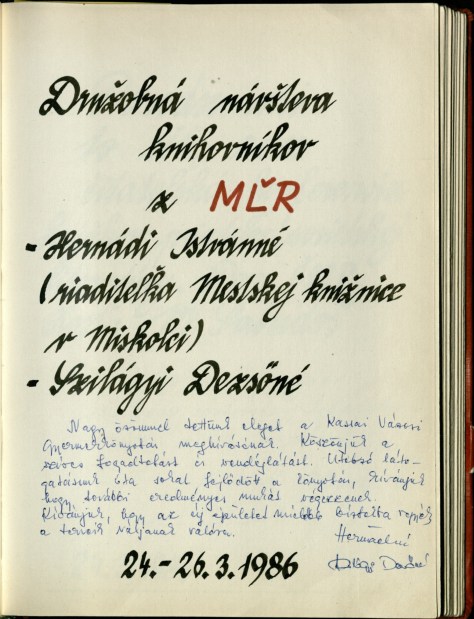 Družobná návšteva
knihovníkov
z MĽR
- Hernádi Istvánné
(riaditeľka Mestskej knižnice
v Miskolci)
- Szilágyi Dezsőné
Nagy örömmel tettünk eleget a Kassai Városi
Gyermekkönyvtár meghívásának. Köszönjük a
szíves fogadtatást és vendéglátást. Utolsó láto-
gatásunk óta sokat fejlődött a könyvtár, kívánjuk
hogy további eredményes munkát végezzenek.
Kívánjuk, hogy az új épületet mielőbb birtokba vegyék
a tervek váljanak valóra.
Hernádiné
Szilágyi Dezsőné
24.-26.3.1986